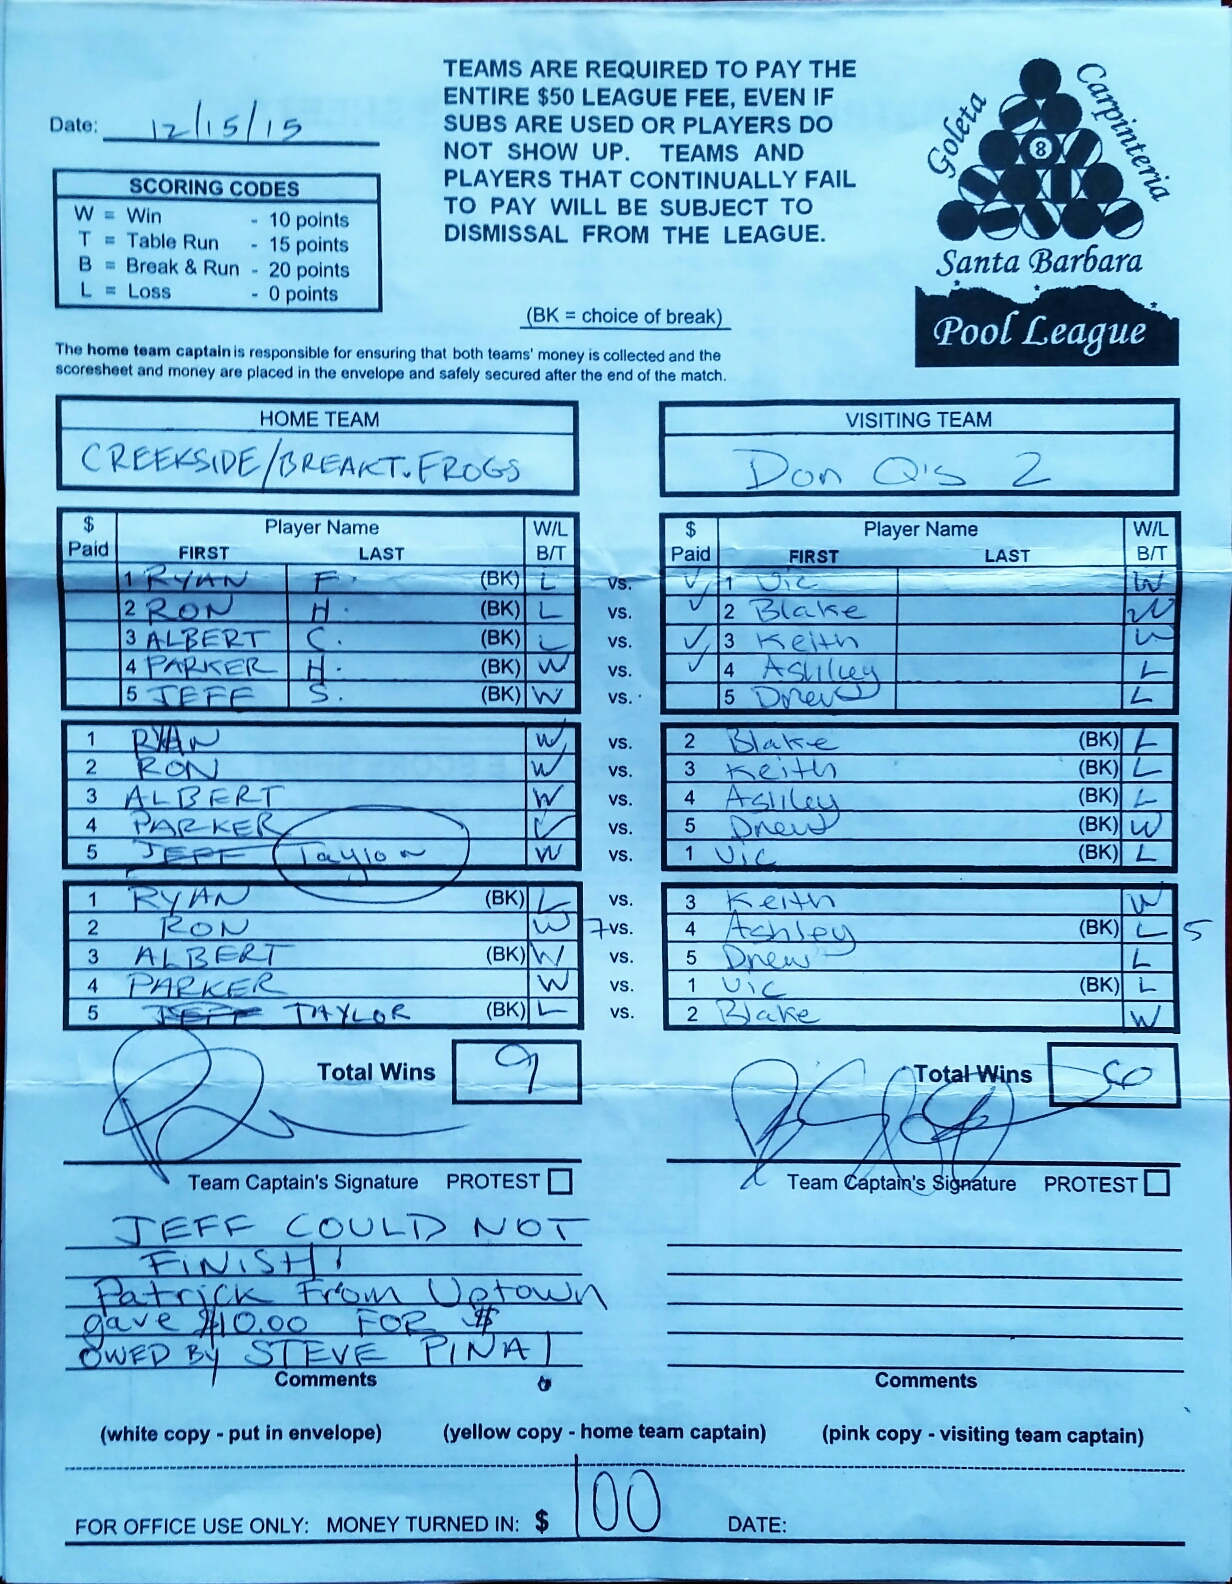 TEAMS ARE REQUIRED TO PAY THE
ENTIRE $50 LEAGUE FEE, EVEN IF
SUBS ARE USED OR PLAYERS DO
NOT SHOW UP. TEAMS AND
PLAYERS THAT CONTINUALLY FAIL
TO PAY WILL BE SUBJECT TO
DISMISSAL FROM THE LEAGUE.
Goleta
Carpinteria
8
Santa Barbara
Pool League
Date: 12/15/15
SCORING CODES
W = Win - 10 points
T = Table Run - 15 points
B = Break & Run - 20 points
L = Loss - 0 points
(BK = choice of break)
The home team captain is responsible for ensuring that both teams' money is collected and the
scoresheet and money are placed in the envelope and safely secured after the end of the match.
HOME TEAM VISITING TEAM
CREEKSIDE/BREAKT.FROGS Don Q's 2
$ Player Name W/L $ Player Name W/L
Paid FIRST LAST B/T Paid FIRST LAST B/T
1 RYAN F. (BK) L vs. ✓ 1 Vic W
2 RON H. (BK) L vs. ✓ 2 Blake W
3 ALBERT C. (BK) L vs. ✓ 3 Keith W
4 PARKER H. (BK) W vs. ✓ 4 Ashley L
5 JEFF S. (BK) W vs. 5 Drew L
1 RYAN W vs. 2 Blake (BK) L
2 RON W vs. 3 Keith (BK) L
3 ALBERT W vs. 4 Ashley (BK) L
4 PARKER vs. 5 Drew (BK) W
5 JEFF Taylor W vs. 1 Vic (BK) L
1 RYAN (BK) L vs. 3 Keith W
2 RON W 7 vs. 4 Ashley (BK) L 5
3 ALBERT (BK) W vs. 5 Drew L
4 PARKER W vs. 1 Vic (BK) L
5 JEFF TAYLOR (BK) L vs. 2 Blake W
Total Wins 9 Total Wins 6
Team Captain's Signature PROTEST Team Captain's Signature PROTEST
JEFF COULD NOT
FINISH!
Patrick From Uptown
gave $10.00 FOR $
OWED BY STEVE PINA!
Comments Comments
(white copy - put in envelope) (yellow copy - home team captain) (pink copy - visiting team captain)
FOR OFFICE USE ONLY: MONEY TURNED IN: $ 100 DATE: